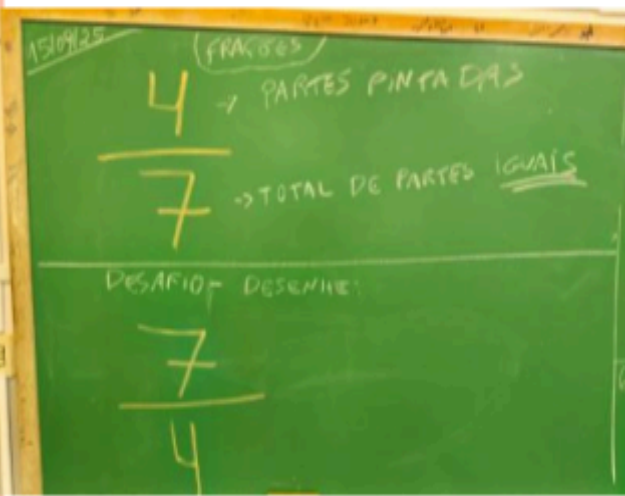 15/09/25
FRAÇÕES
4 -> PARTES PINTADAS
7 -> TOTAL DE PARTES IGUAIS
DESAFIO - DESENHE:
7
4